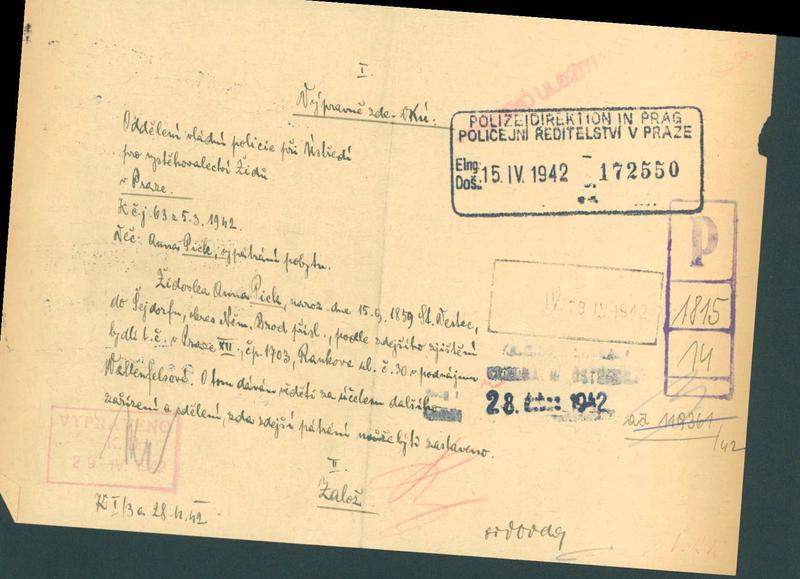 I.
Výpravně zde - OKú:
POLIZEIDIREKTION IN PRAG
POLICEJNÍ ŘEDITELSTVÍ V PRAZE
Eing.
Doš.
15. IV. 1942
172550
Oddělení vládní policie při Ústředí
pro vystěhovalectví Židů
v Praze.
K č.j. 63 z 5.3. 1942.
Věc: Anna Pick, vypátrání pobytu.
Židovka Anna Pick, naroz. dne 15.9. 1859 St. Westec,
do Šejdorfu, okres Něm. Brod přísl., podle zdejšího zjištění
bydlí t. č. v Praze XII, čp. 1703, Rankova ul. č. 30 v podnájmu
Wallenfelsové. O tom dávám věděti za účelem dalšího
zařízení a sdělení, zda zdejší pátrání může býti zastaveno.
P
1815
14
1942
28. 1942
ad 119361/42
VYPRAVENO
29. IV.
II.
Založ.
K I/3a 28.4.42